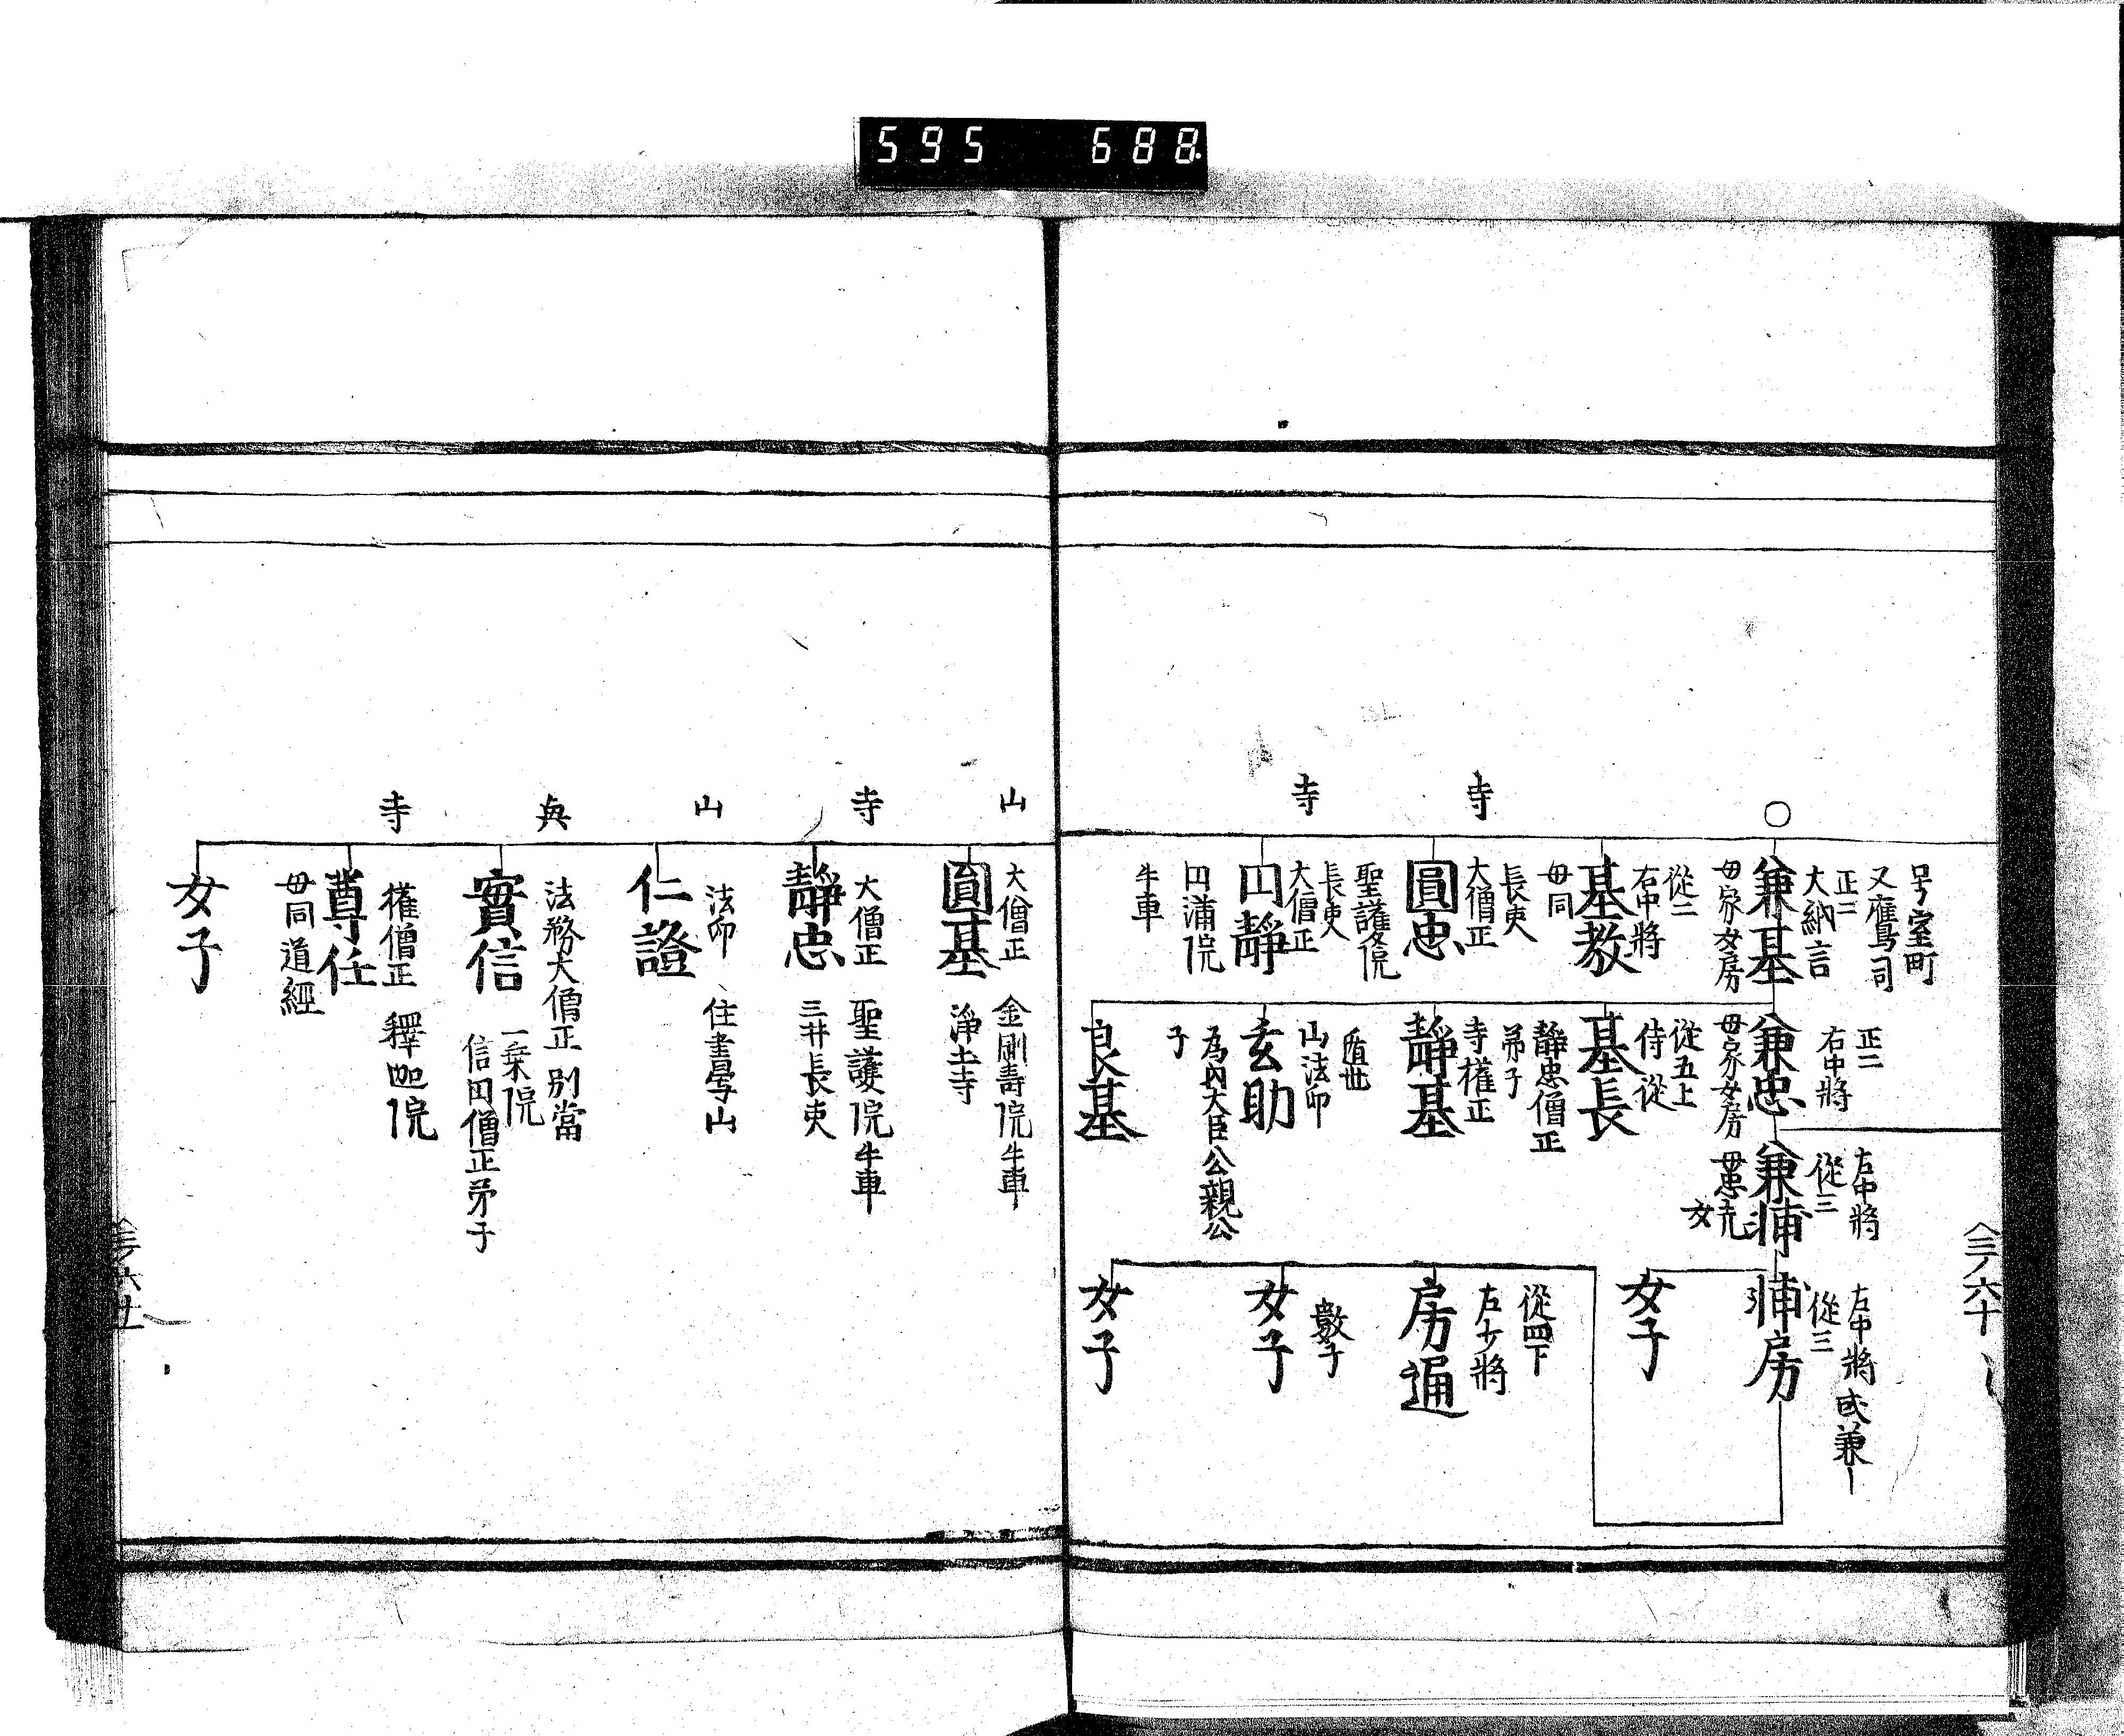 595 688.
○
号室町
又鷹司
正二
大納言
兼基
母家女房
從二
右中將
基教
母同
寺
長吏
大僧正
圓忠
聖護院
寺
長吏
大僧正
円靜
円滿院
牛車
正二
右中將
兼忠
母家女房
從五上
侍從
基長
靜忠僧正
弟子
寺權正
靜基
遁世
山法印
玄助
為内大臣公親公
子
良基
左中將
從三
女
左中將或兼
從三
女子
從四下
左少將
房通
女子
女子
三ノ六十
山
大僧正 金剛壽院牛車
圓基 淨土寺
寺
大僧正 聖護院牛車
靜忠 三井長吏
山
法印 住書寫山
仁證
法務大僧正別當
一乗院
實信 信円僧正弟子
寺
權僧正 釋迦院
尊任
母同道經
女子